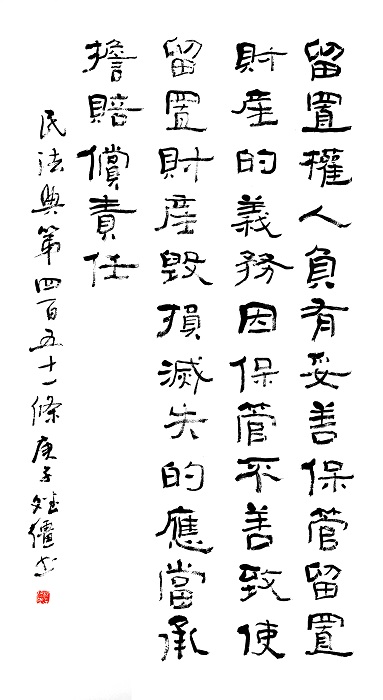 留置權人負有妥善保管留置
財產的義務因保管不善致使
留置財產毀損滅失的應當承
擔賠償責任
民法典第四百五十一條庚子繼疆书